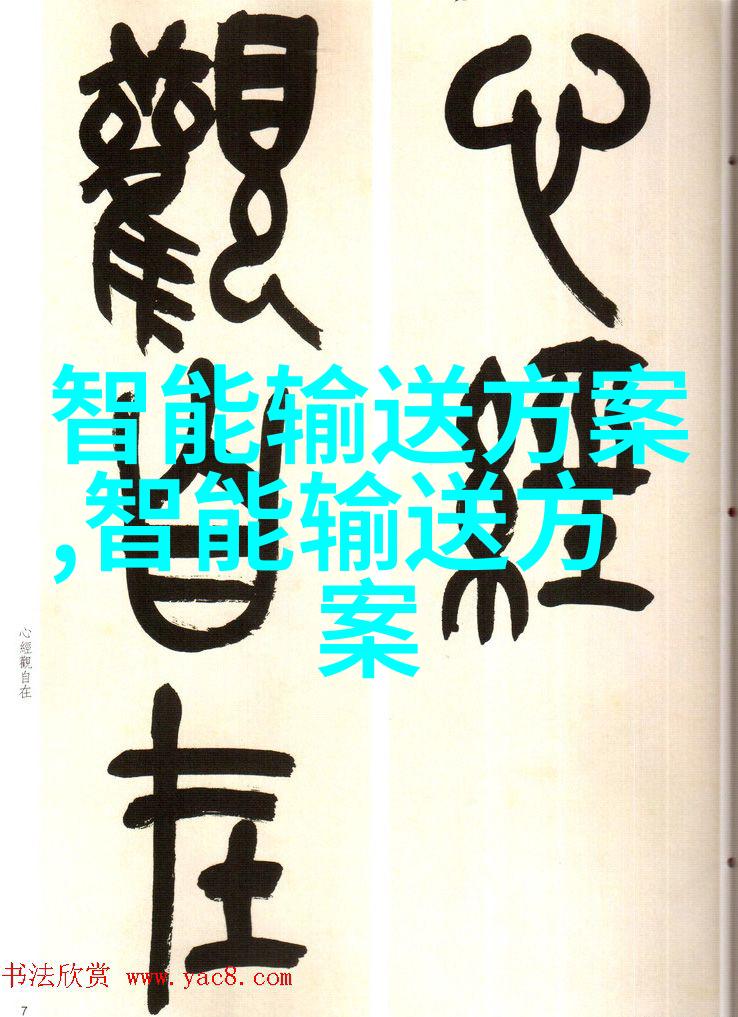 心經
觀自在
智能输送方案
,智能输送方
案
心經觀自在
书法欣赏 www.yac8.com
7